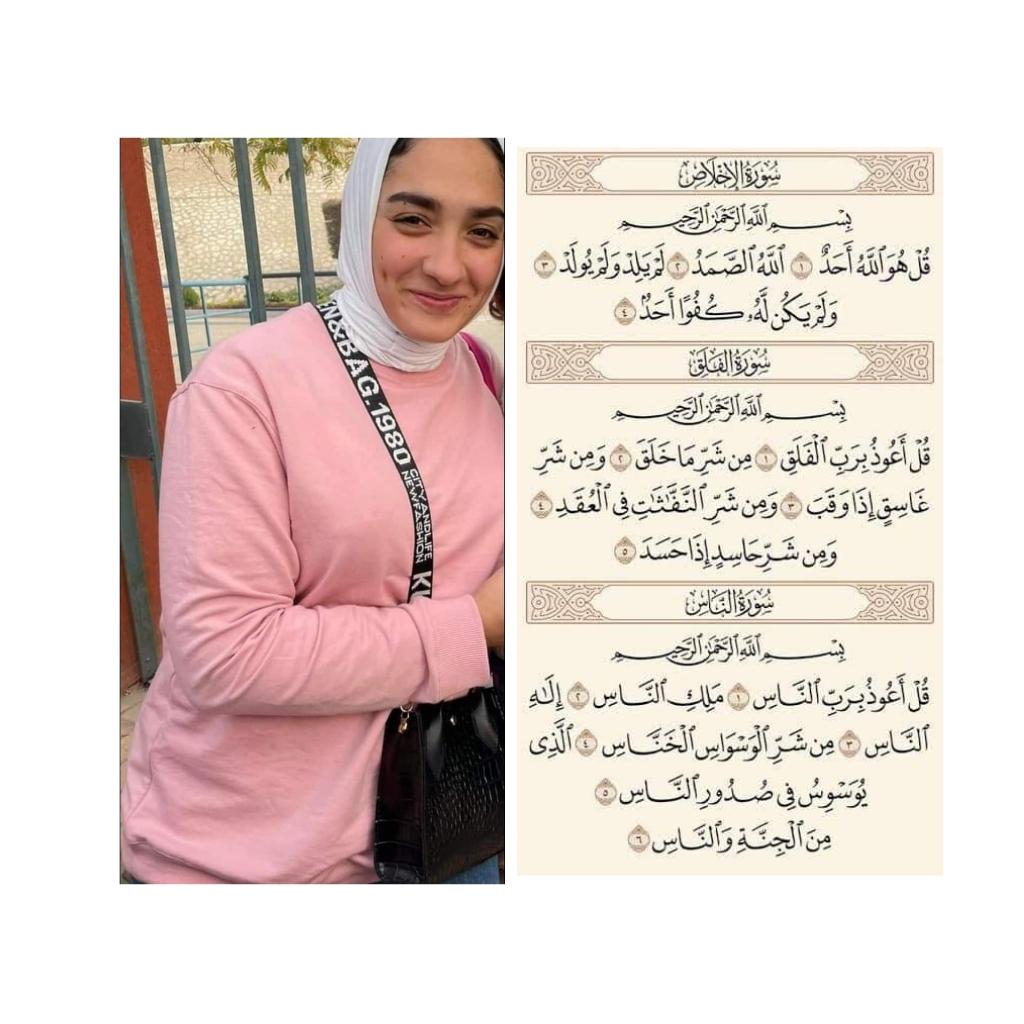 EN&BAG.1980
CITYANDLIFE
NEWFASHION
سُورَةُ الإِخْلَاصِ
بِسْمِ ٱللَّهِ ٱلرَّحْمَٰنِ ٱلرَّحِيمِ
قُلْ هُوَ ٱللَّهُ أَحَدٌ ١ ٱللَّهُ ٱلصَّمَدُ ٢ لَمْ يَلِدْ وَلَمْ يُولَدْ ٣
وَلَمْ يَكُن لَّهُۥ كُفُوًا أَحَدٌۢ ٤
سُورَةُ الفَلَقِ
بِسْمِ ٱللَّهِ ٱلرَّحْمَٰنِ ٱلرَّحِيمِ
قُلْ أَعُوذُ بِرَبِّ ٱلْفَلَقِ ١ مِن شَرِّ مَا خَلَقَ ٢ وَمِن شَرِّ
غَاسِقٍ إِذَا وَقَبَ ٣ وَمِن شَرِّ ٱلنَّفَّٰثَٰتِ فِي ٱلْعُقَدِ ٤
وَمِن شَرِّ حَاسِدٍ إِذَا حَسَدَ ٥
سُورَةُ النَّاسِ
بِسْمِ ٱللَّهِ ٱلرَّحْمَٰنِ ٱلرَّحِيمِ
قُلْ أَعُوذُ بِرَبِّ ٱلنَّاسِ ١ مَلِكِ ٱلنَّاسِ ٢ إِلَٰهِ
ٱلنَّاسِ ٣ مِن شَرِّ ٱلْوَسْوَاسِ ٱلْخَنَّاسِ ٤ ٱلَّذِي
يُوَسْوِسُ فِي صُدُورِ ٱلنَّاسِ ٥
مِنَ ٱلْجِنَّةِ وَٱلنَّاسِ ٦